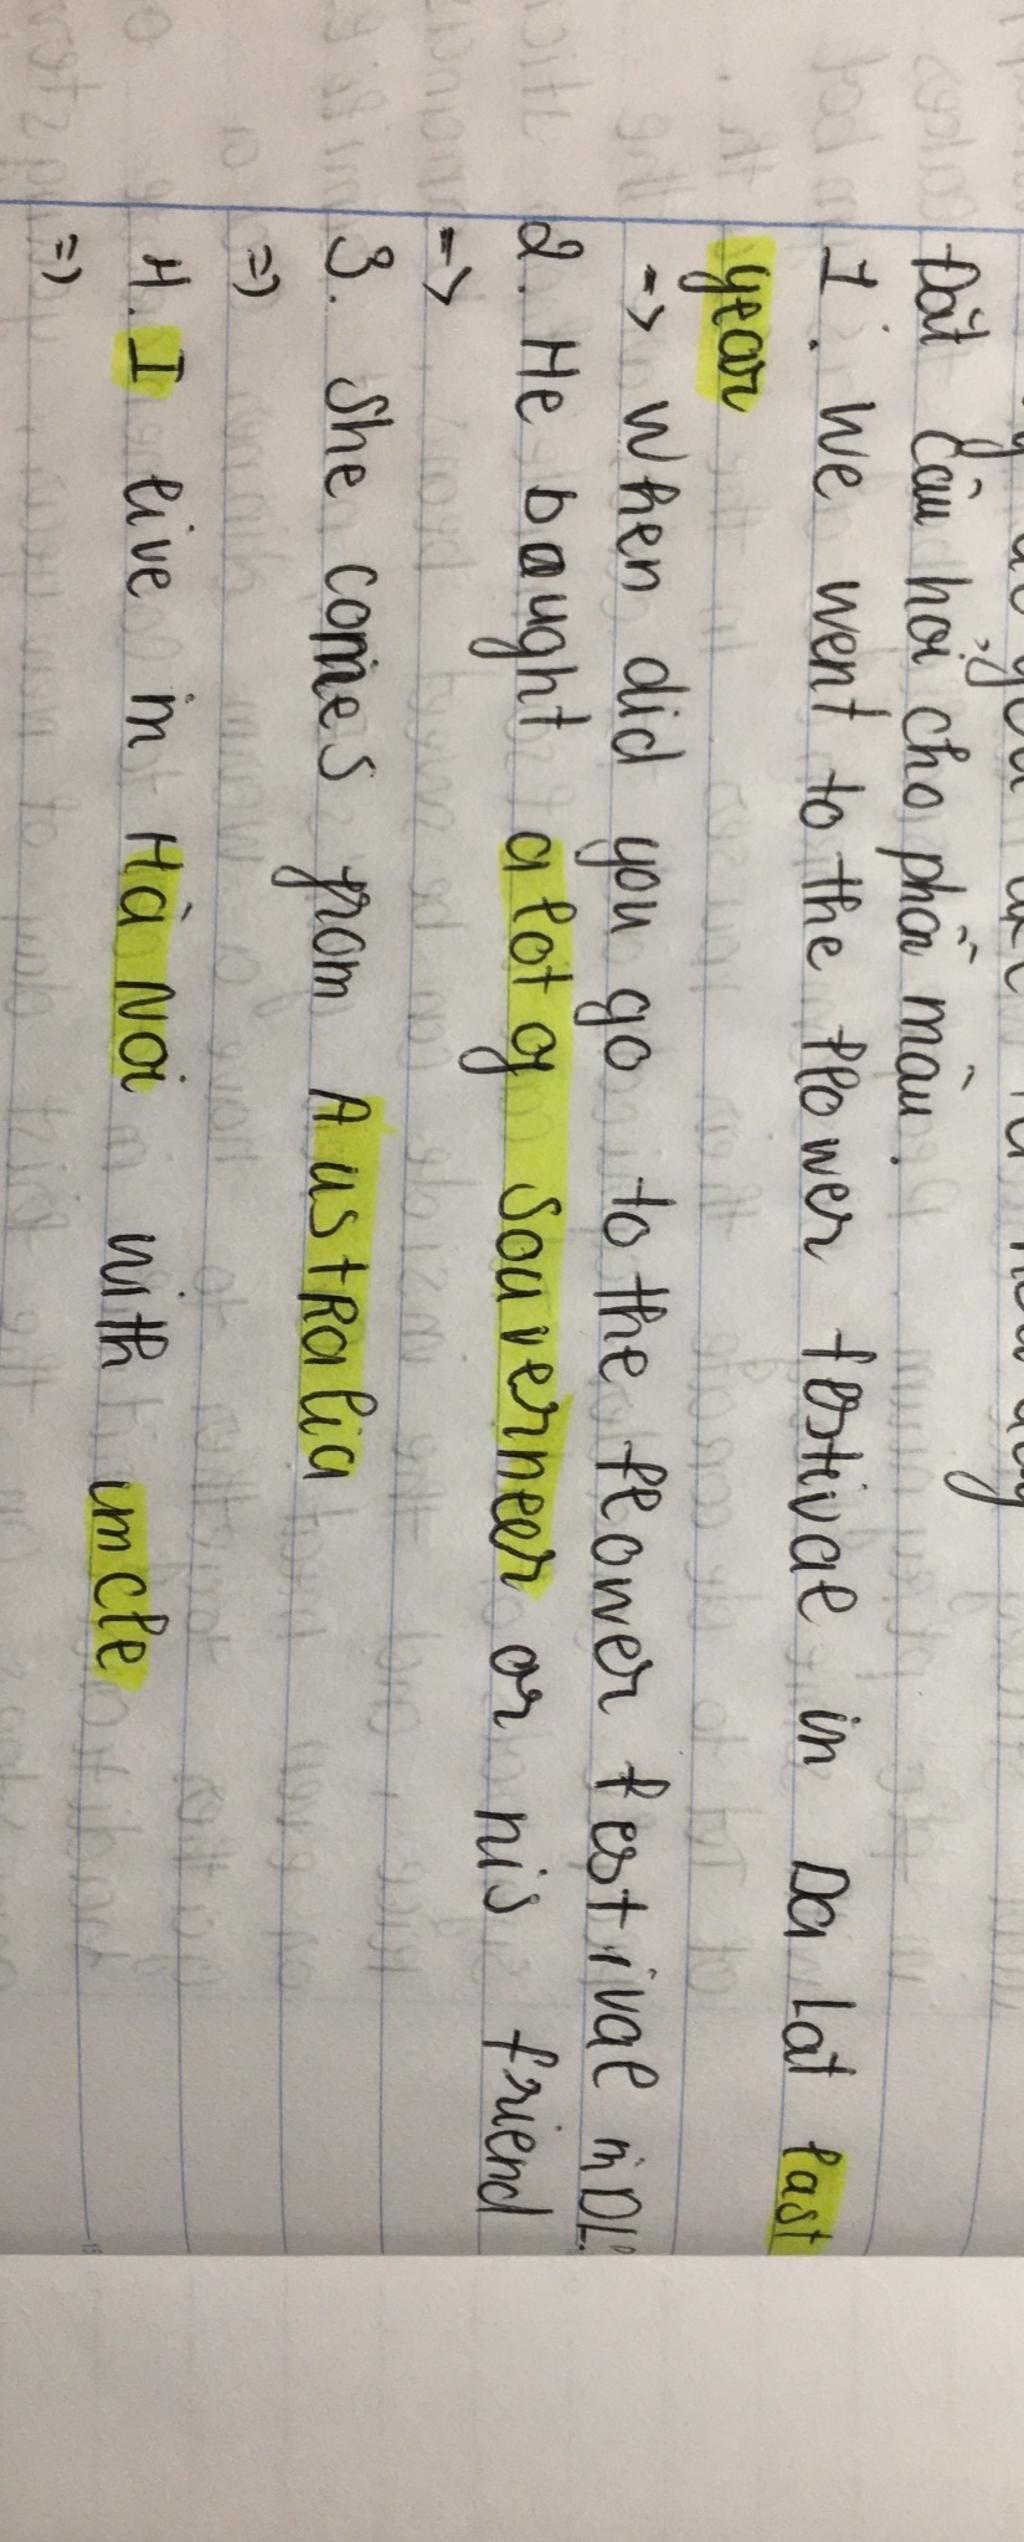 Đặt câu hỏi cho phần màu.
1. We went to the flower festival in Da Lat last
year
-> When did you go to the flower festival in DL?
2. He baught a lot of souverneer or his friend
->
3. She comes from Australia
=>
4. I live in Hà Nội with uncle
=>